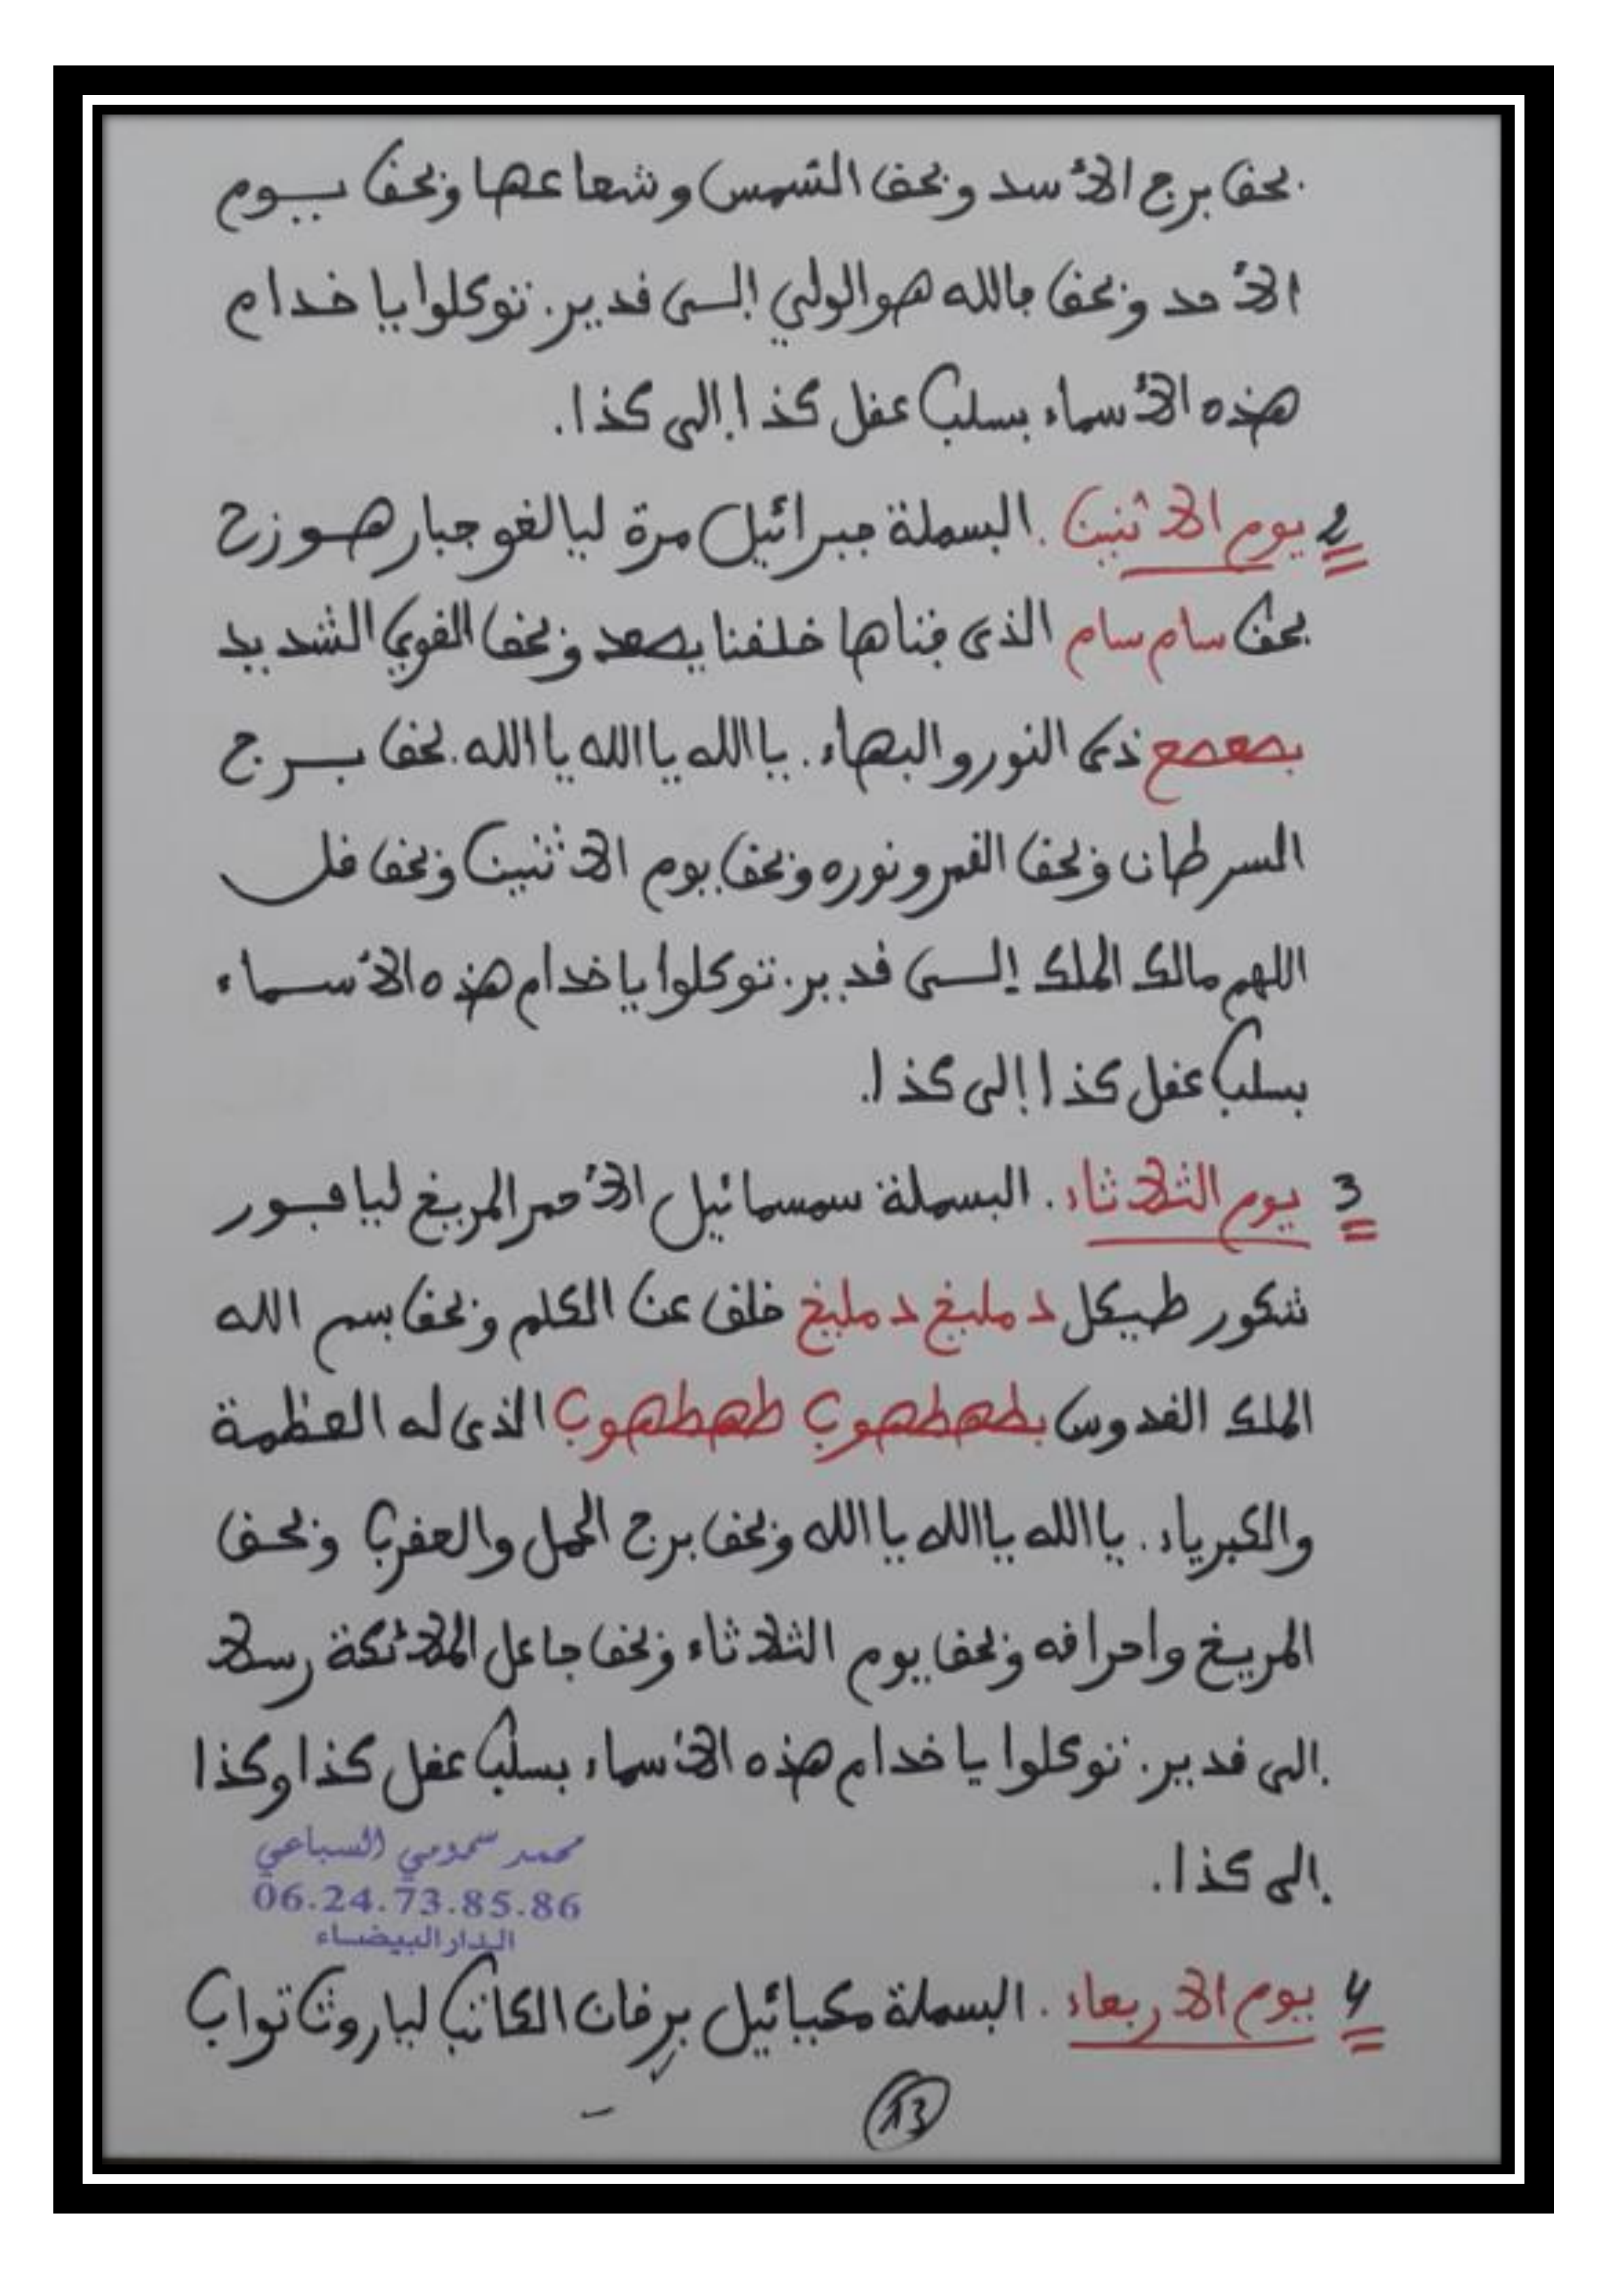 بحق برج الأسد وبحق الشمس وشعاعها وبحق يوم
الأحد وبحق بالله هو الولي إلى قدير. توكلوا يا خدام
هذه الأسماء بسلب عقل كذا إلى كذا.
2 يوم الاثنين. البسملة جبرائيل مرة ليالغو جبار هوزح
بحق سام سام الذى خلقنا يصعد وبحق القوي الشديد
بصعصع ذى النور والبهاء. يا الله يا الله يا الله. بحق برج
السرطان وبحق القمر ونوره وبحق يوم الاثنين وبحق قل
اللهم مالك الملك إلى قدير. توكلوا يا خدام هذه الأسماء
بسلب عقل كذا إلى كذا.
3 يوم الثلاثاء. البسملة سمسمائيل الأحمر المريخ ليافور
شكور طيكل دمليخ دمليخ خلق عن الكلم وبحق بسم الله
الملك القدوس بطهطهوب طهطهوب الذى له العظمة
والكبرياء. يا الله يا الله يا الله وبحق برج الحمل والعقرب وبحق
المريخ واحراقه وبحق يوم الثلاثاء وبحق جاعل الملائكة رسلا
إلى قدير. توكلوا يا خدام هذه الأسماء بسلب عقل كذا وكذا
إلى كذا.
محمد سمومي السباعي
06.24.73.85.86
الدار البيضاء
4 يوم الاربعاء. البسملة مكيائيل برقان الكاتب لياروث تواب
13